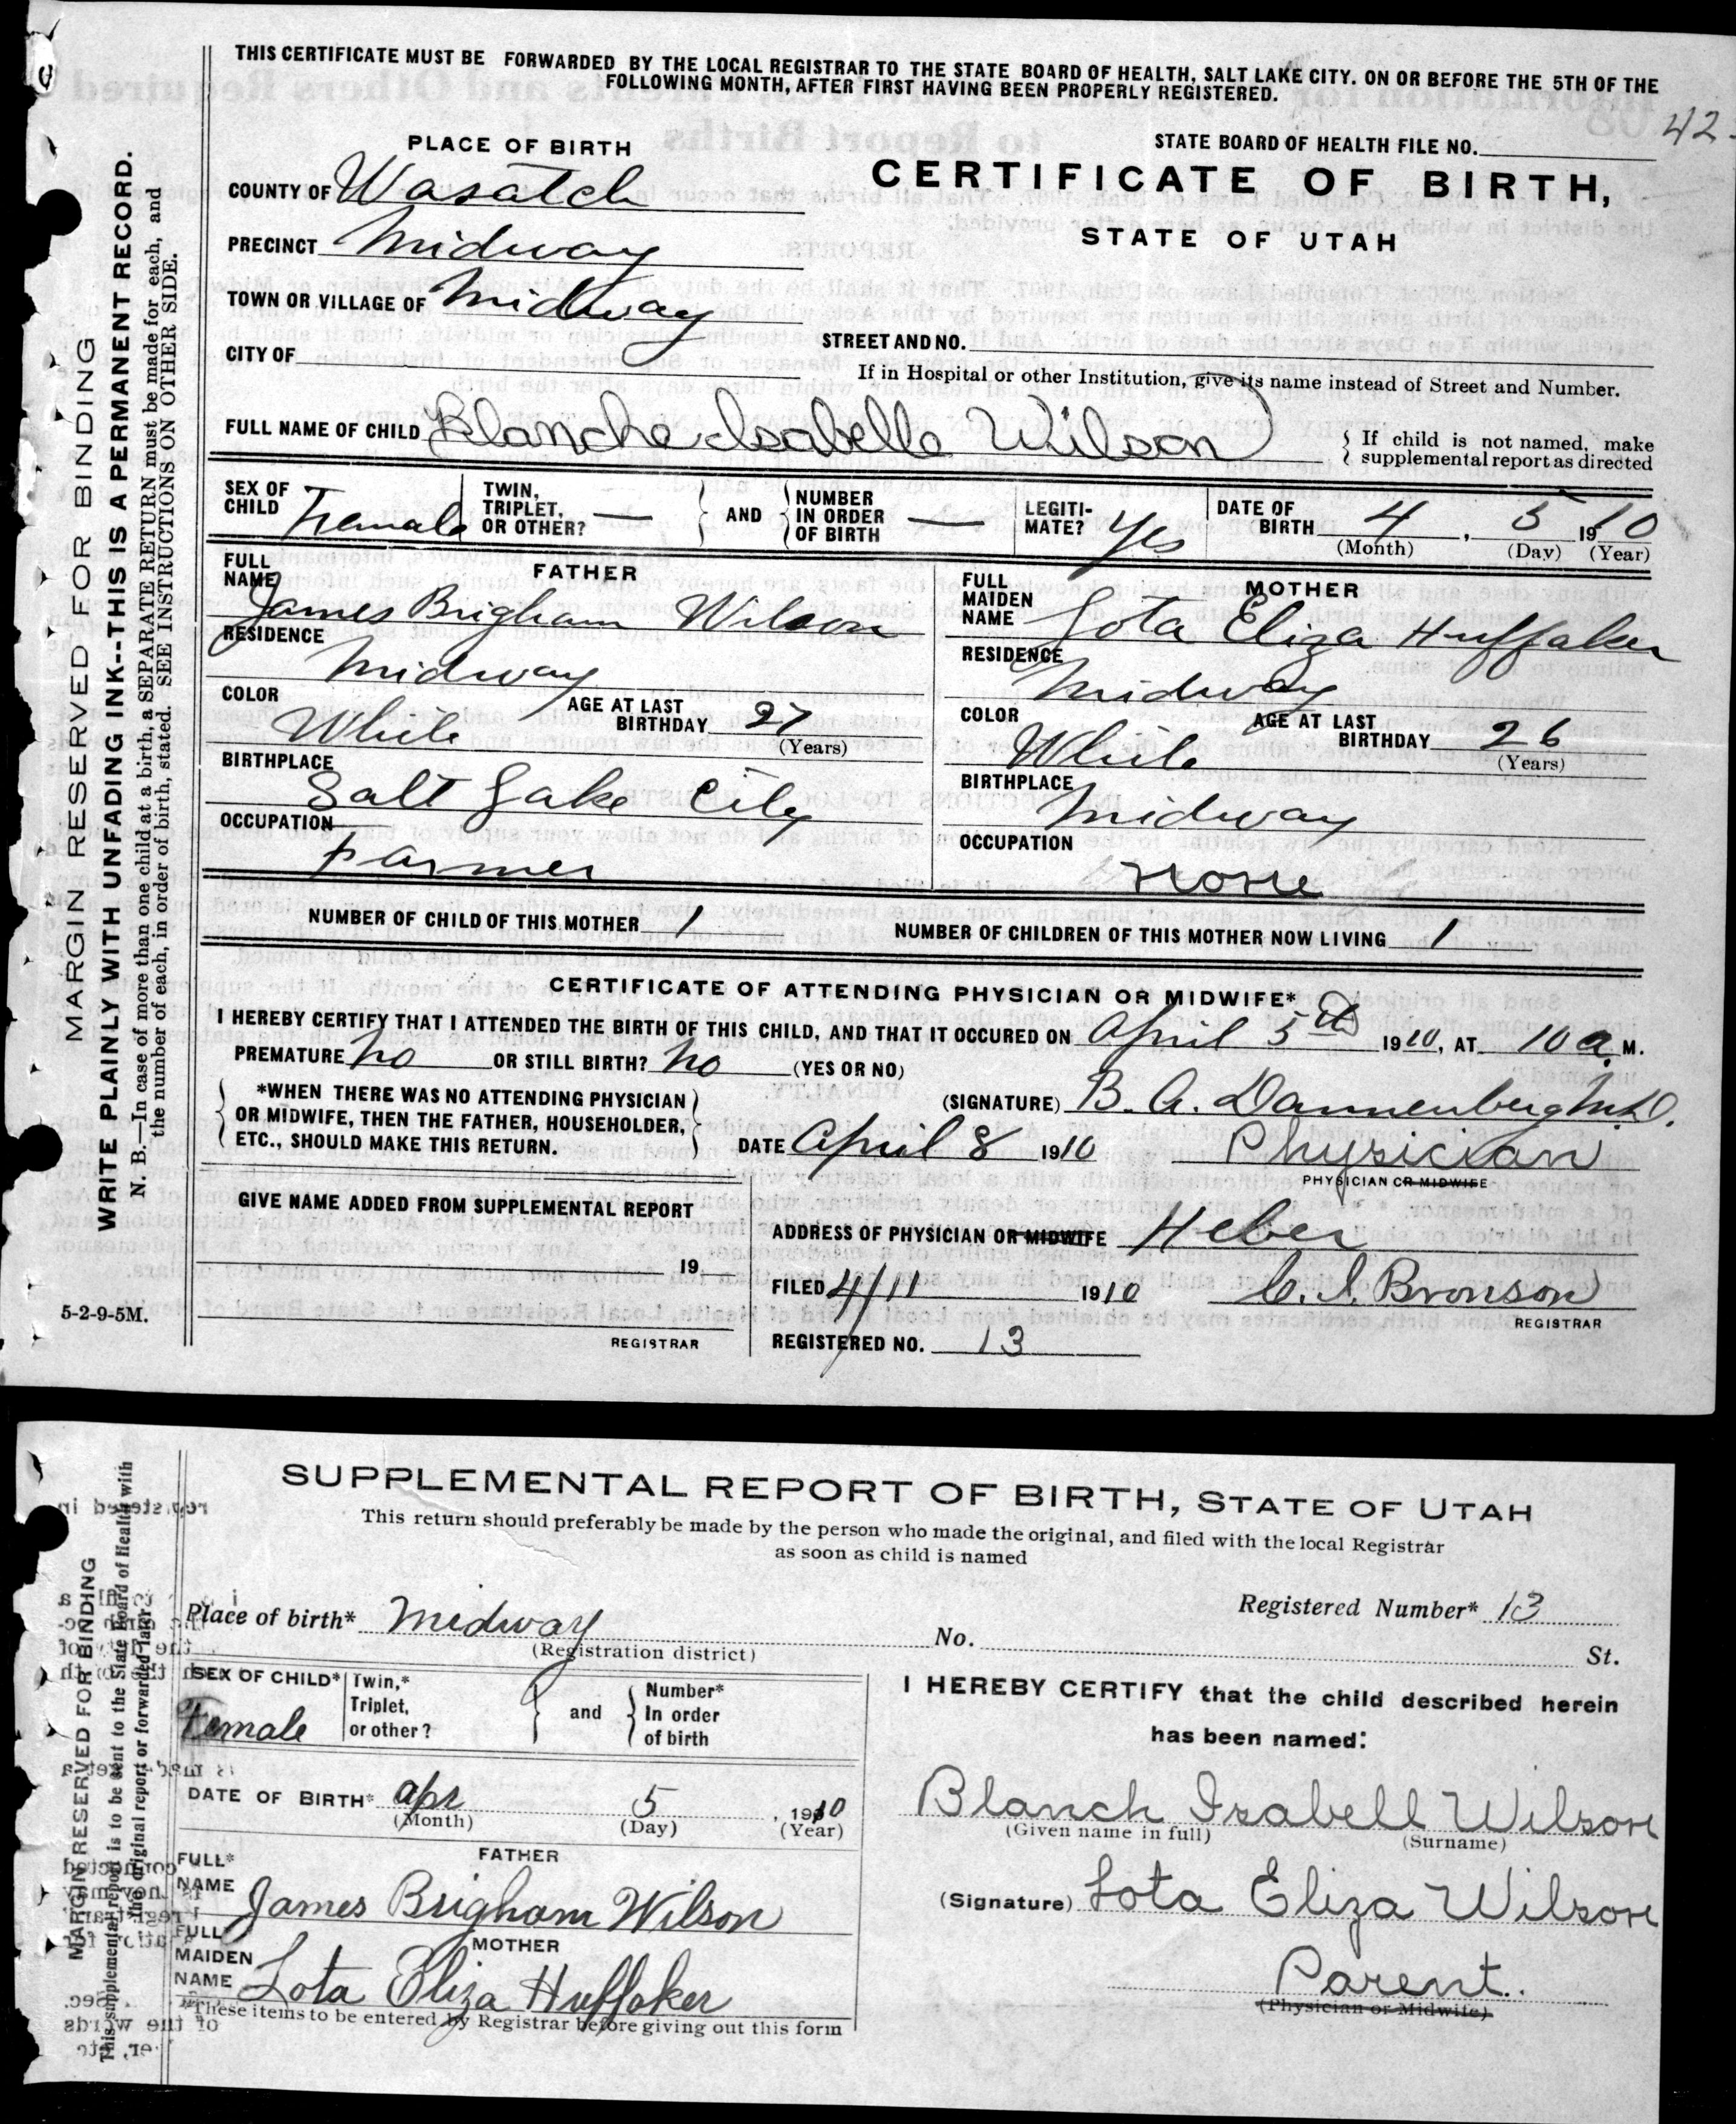 THIS CERTIFICATE MUST BE FORWARDED BY THE LOCAL REGISTRAR TO THE STATE BOARD OF HEALTH, SALT LAKE CITY. ON OR BEFORE THE 5TH OF THE
FOLLOWING MONTH, AFTER FIRST HAVING BEEN PROPERLY REGISTERED.
42
PLACE OF BIRTH
STATE BOARD OF HEALTH FILE NO.
COUNTY OF Wasatch
CERTIFICATE OF BIRTH,
PRECINCT Midway
STATE OF UTAH
TOWN OR VILLAGE OF Midway
CITY OF
STREET AND NO.
If in Hospital or other Institution, give its name instead of Street and Number.
FULL NAME OF CHILD Blanche Isabelle Wilson
If child is not named, make
supplemental report as directed
SEX OF CHILD Female
TWIN, TRIPLET, OR OTHER? —
AND
NUMBER IN ORDER OF BIRTH —
LEGITI-MATE? Yes
DATE OF BIRTH 4, 5 1910
(Month) (Day) (Year)
FATHER
FULL NAME James Brigham Wilson
RESIDENCE Midway
COLOR White
AGE AT LAST BIRTHDAY 27
(Years)
BIRTHPLACE Salt Lake City
OCCUPATION Farmer
MOTHER
FULL MAIDEN NAME Lota Eliza Huffaker
RESIDENCE Midway
COLOR White
AGE AT LAST BIRTHDAY 26
(Years)
BIRTHPLACE Midway
OCCUPATION None
NUMBER OF CHILD OF THIS MOTHER 1
NUMBER OF CHILDREN OF THIS MOTHER NOW LIVING 1
CERTIFICATE OF ATTENDING PHYSICIAN OR MIDWIFE*
I HEREBY CERTIFY THAT I ATTENDED THE BIRTH OF THIS CHILD, AND THAT IT OCCURED ON April 5th 1910, AT 10 a. M.
PREMATURE No OR STILL BIRTH? No (YES OR NO)
*WHEN THERE WAS NO ATTENDING PHYSICIAN
OR MIDWIFE, THEN THE FATHER, HOUSEHOLDER,
ETC., SHOULD MAKE THIS RETURN.
(SIGNATURE) B. A. Dannenberg M.D.
DATE April 8 1910
Physician
PHYSICIAN OR MIDWIFE
GIVE NAME ADDED FROM SUPPLEMENTAL REPORT
19
REGISTRAR
ADDRESS OF PHYSICIAN OR MIDWIFE Heber
FILED 4/11 1910
C. I. Bronson
REGISTRAR
REGISTERED NO. 13
MARGIN RESERVED FOR BINDING
WRITE PLAINLY WITH UNFADING INK--THIS IS A PERMANENT RECORD.
N. B.—In case of more than one child at a birth, a SEPARATE RETURN must be made for each, and
the number of each, in order of birth, stated. SEE INSTRUCTIONS ON OTHER SIDE.
5-2-9-5M.
SUPPLEMENTAL REPORT OF BIRTH, STATE OF UTAH
This return should preferably be made by the person who made the original, and filed with the local Registrar
as soon as child is named
Place of birth* Midway
(Registration district)
Registered Number* 13
No. St.
SEX OF CHILD* Female
Twin,* Triplet, or other?
and
Number* In order of birth
DATE OF BIRTH* Apr 5, 1910
(Month) (Day) (Year)
FATHER
FULL* NAME James Brigham Wilson
MOTHER
FULL MAIDEN NAME Lota Eliza Huffaker
*These items to be entered by Registrar before giving out this form
I HEREBY CERTIFY that the child described herein
has been named:
Blanch Isabell Wilson
(Given name in full) (Surname)
(Signature) Lota Eliza Wilson
Parent.
(Physician or Midwife)
MARGIN RESERVED FOR BINDING
This supplemental report is to be sent to the State Board of Health with
the original report or forwarded later.